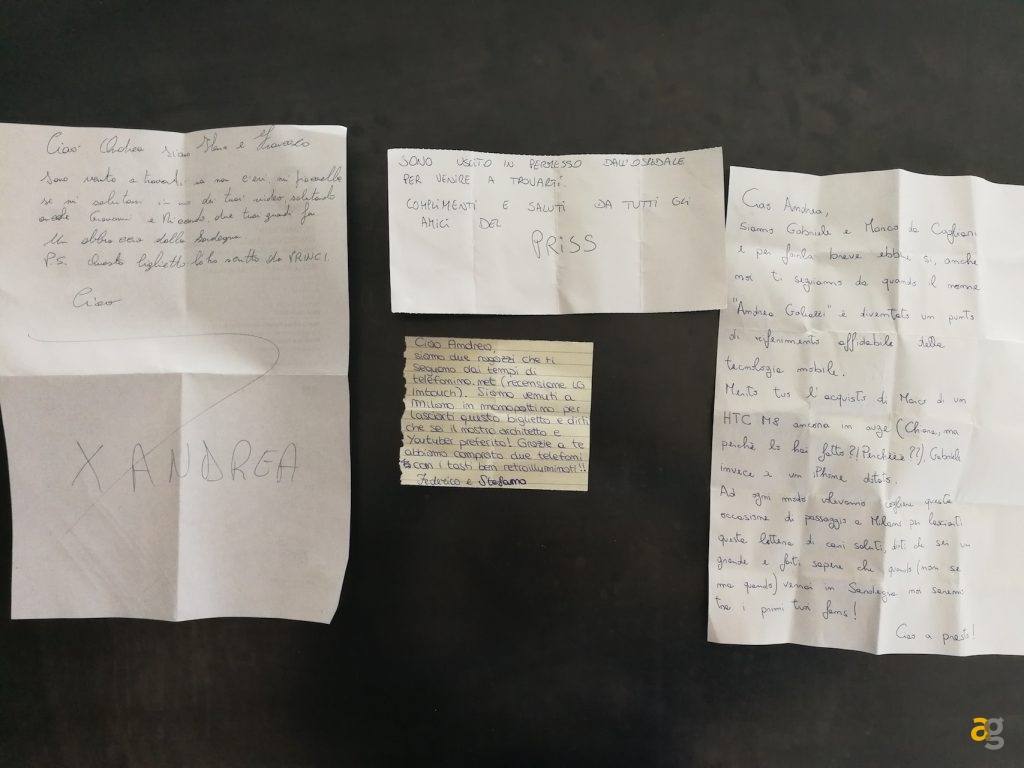 Ciao Andrea siamo Elena e Francesco
sono venuto a trovarti, ma non c'eri, mi farebbe
se mi salutassi in uno dei tuoi video, salutando
anche Giovanni e Riccardo, due tuoi grandi fan
Un abbraccio dalla Sardegna
P.S. Questo biglietto l'ho scritto da PRINCI.
Ciao
X ANDREA
SONO USCITO IN PERMESSO DALL'OSPEDALE
PER VENIRE A TROVARTI.
COMPLIMENTI E SALUTI DA TUTTI GLI
AMICI DEL
PRISS
Ciao Andrea,
siamo due ragazzi che ti
seguono dai tempi di
telefonino.net (recensione LG
intouch). Siamo venuti a
Milano in monopattino per
lasciarti questo biglietto e dirti
che sei il nostro architetto e
Youtuber preferito! Grazie a te
abbiamo comprato due telefoni
con i tasti ben retroilluminati!!
Federico e Stefano
Ciao Andrea,
siamo Gabriele e Marco da Cagliari
e per farla breve ebbene si, anche
noi ti seguiamo da quando il nome
"Andrea Galeazzi" è diventato un punto
di riferimento affidabile della
tecnologia mobile.
Merito tuo l'acquisto di Marco di un
HTC M8 ancora in auge (Chiara, ma
perché lo hai fatto?! Perchèèè??), Gabriele
invece è un iPhone dotato.
Ad ogni modo volevamo cogliere questa
occasione di passaggio a Milano per lasciarti
questa lettera di cari saluti, dirti che sei un
grande e farti sapere che quando (non se
ma quando) verrai in Sardegna noi saremo
tra i primi tuoi fans!
Ciao a presto!
ag